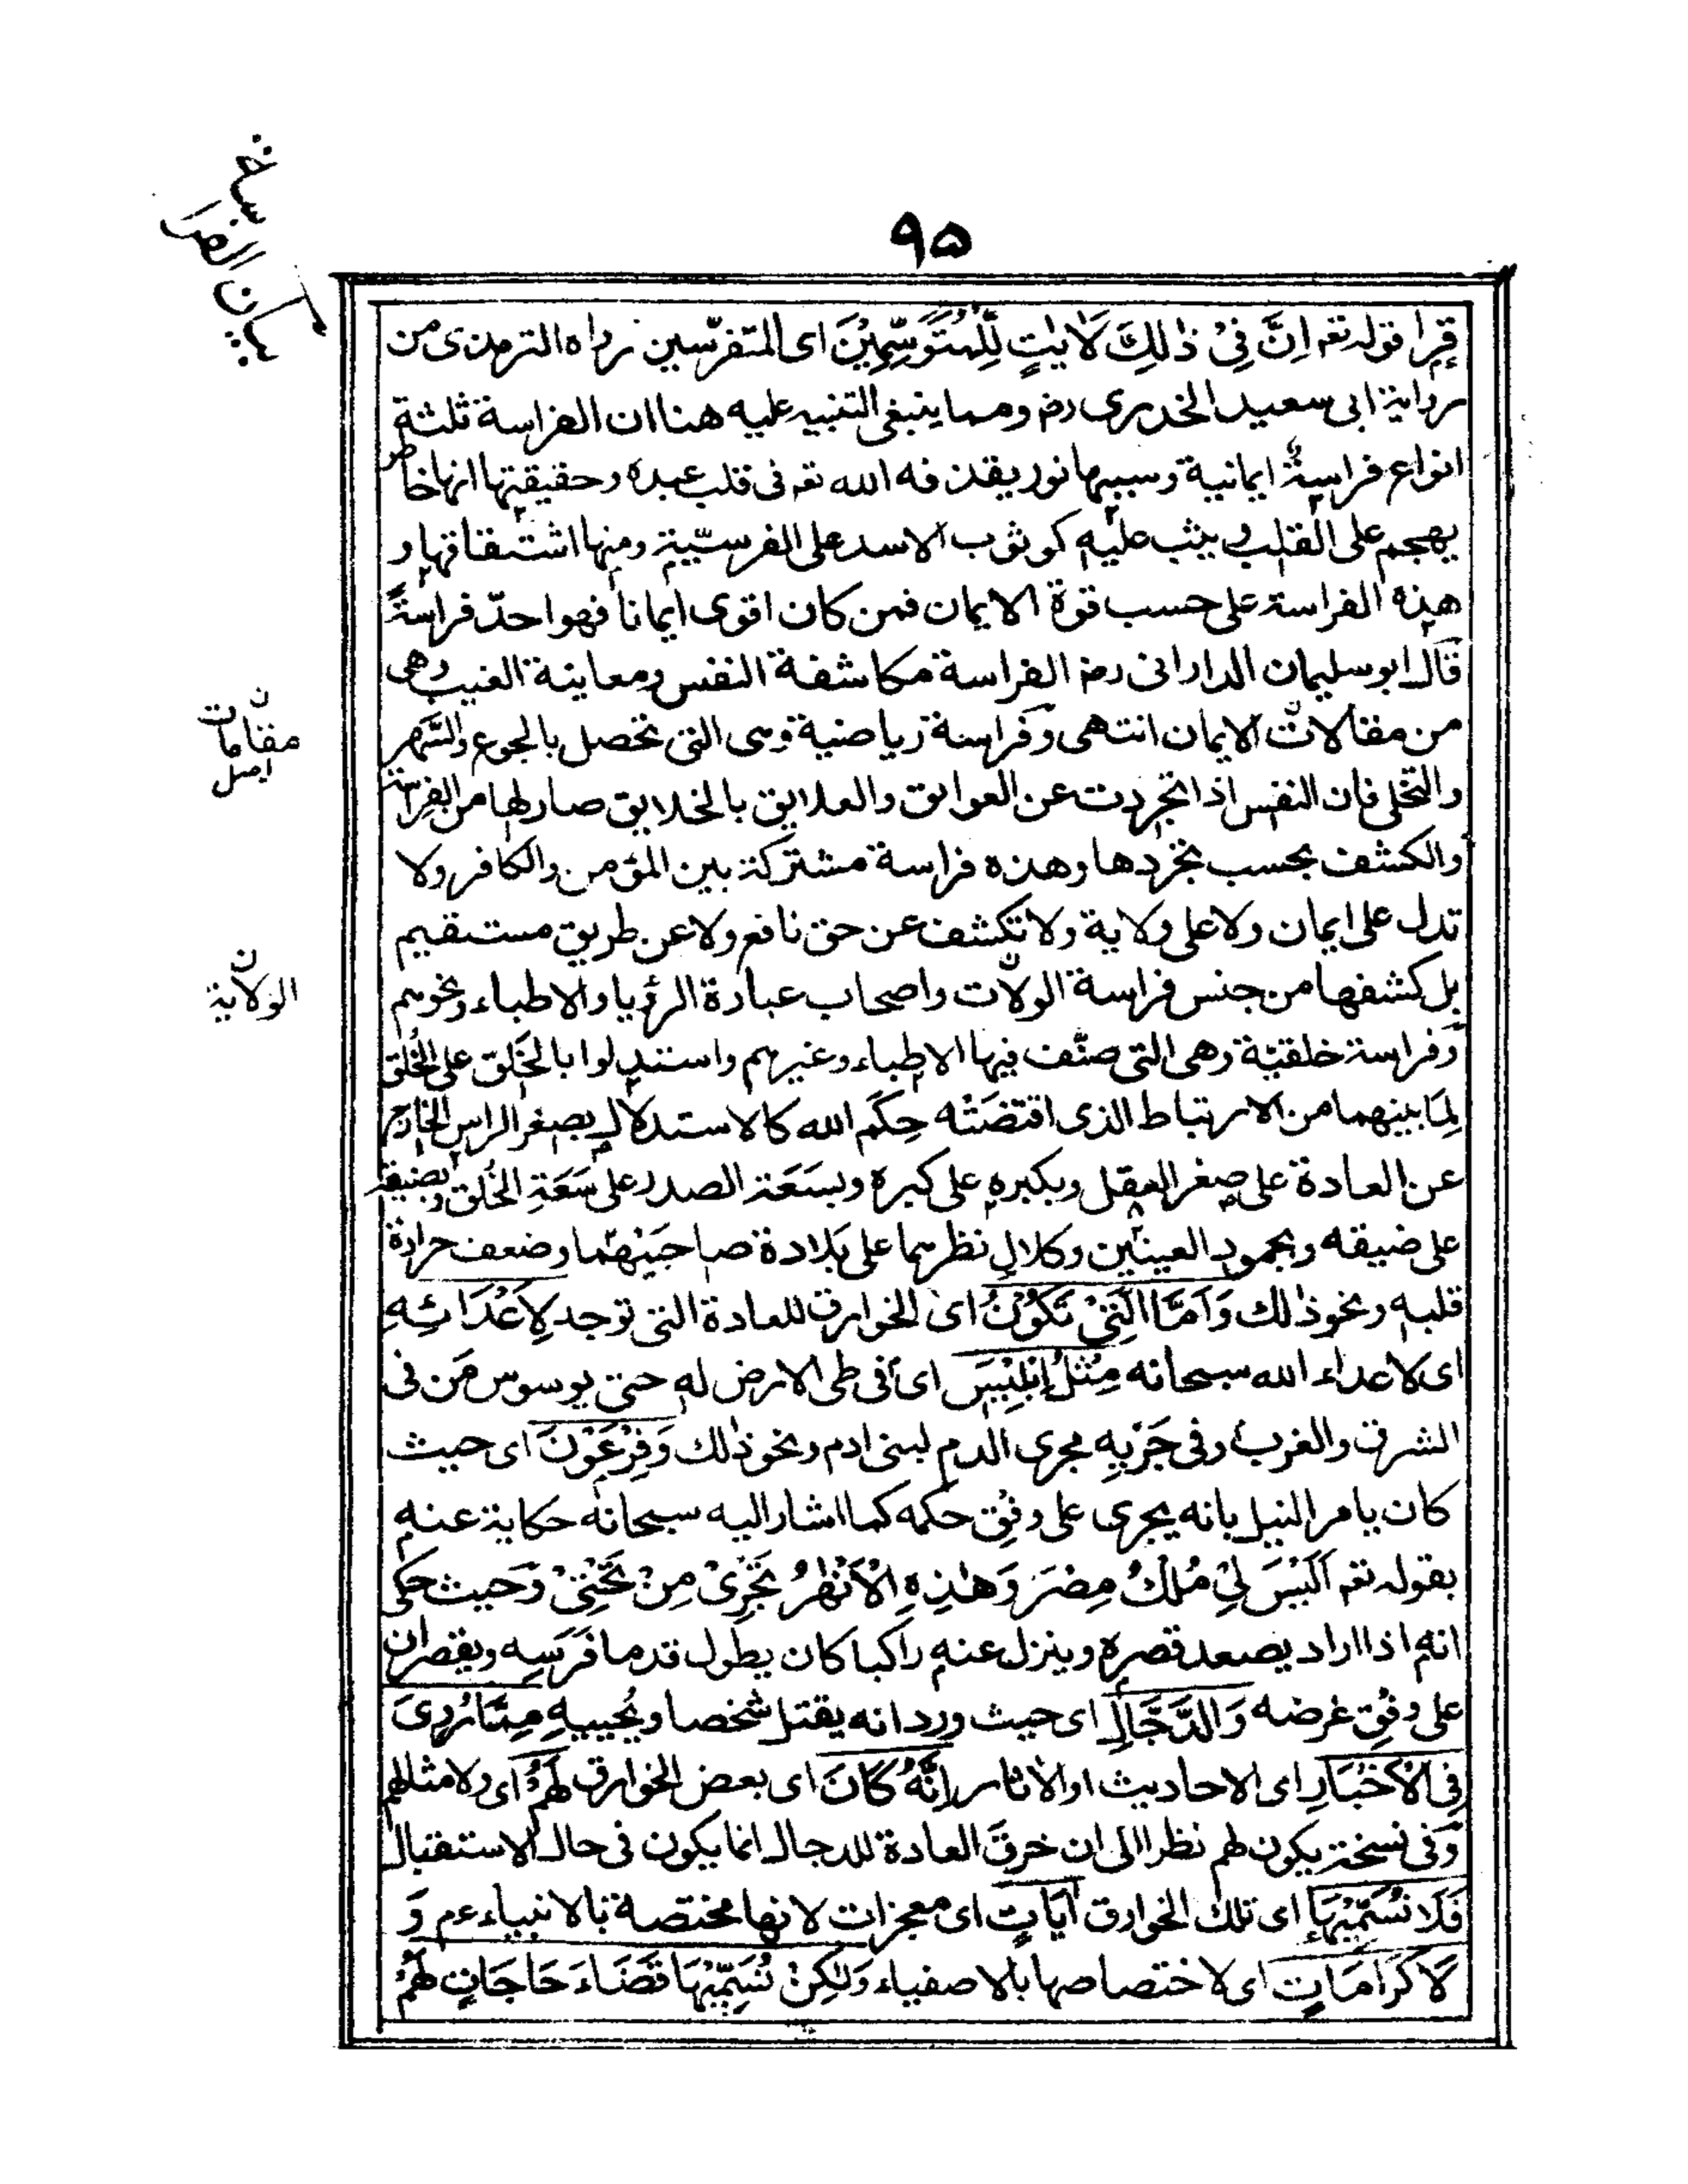 بيان الفراسة
۹۵
قرأ قوله تعم اِنَّ فِیْ ذٰلِكَ لَاٰیٰتٍ لِّلْمُتَوَسِّمِیْنَ ای المتفرّسین رواه الترمذی من
روایة ابی سعید الخدری رضـ ومما ینبغی التنبیه علیه هنا ان الفراسة ثلثة
انواع فراسةٌ ایمانیة وسببها نور یقذفه الله تعم فی قلب عبده وحقیقتها انها خاطر
یهجم علی القلب و یثب علیه کوثوب الاسد علی الفرسیّة ومنها اشتقاقها و
هذه الفراسة علی حسب قوة الایمان فمن کان اقوی ایمانا فهو احدّ فراسةً
قال ابو سلیمان الدارانی رضـ الفراسة مکاشفة النفس ومعاینة الغیب وهی
من مقالات الایمان انتهی وفراسة ریاضیة وهی التی تحصل بالجوع والسَّهر
ن
مقامات
اصل
والتخلی فان النفس اذا تجردت عن العوایق والعلایق بالخلایق صار لها من الفراسة
والکشف بحسب تجردها وهذه فراسة مشترکة بین المؤمن والکافر ولا
تدل علی ایمان ولا علی ولایة ولا تکشف عن حق نافع ولا عن طریق مستقیم
بل کشفها من جنس فراسة الولات واصحاب عبارة الرؤیا والاطباء ونحوهم
ن
الولایة
وفراسة خلقیّة وهی التی صنّف فیها الاطباء وغیرهم واستدلوا بالخَلق علی الخُلق
لِمَا بینهما من الارتباط الذی اقتضَتْه حِکَم الله کالاستدلال بصغر الراس الخارج
عن العادة علی صغر العقل وبکبره علی کبره وبسَعَة الصدر علی سَعَةِ الخُلق وبضیقه
علی ضیقه وبجمود العینین وکلالِ نظرهما علی بَلادة صاحبَیْهما وضعف حرارة
قلبه ونحو ذٰلك وَاَمَّا الَّتِیْ تَکُوْنُ ای الخوارق للعادة التی توجد لِاَعْدَائِهِ
ای لاعداء الله سبحانه مِثْلُ اِبْلِیْسَ ای فی طی الارض له حتی یوسوس مَن فی
الشرق والغرب وفی جَرْیِهِ مجری الدم لبنی ادم ونحو ذٰلك وَفِرْعَوْنَ ای حیث
کان یامر النیل بانه یجری علی وفْقِ حکمه کما اشار الیه سبحانه حکایة عنه
بقوله تعم اَلَیْسَ لِیْ مُلْكُ مِصْرَ وَهٰذِهِ الْاَنْهٰرُ تَجْرِیْ مِنْ تَحْتِیْ وَحیث حکی
انه اذا اراد یصعد قصره وینزل عنه راکبا کان یطول قدما فَرَسِه ویقصران
علی وفْقِ غرضه وَالدَّجَّالِ ای حیث ورد انه یقتل شخصا ویُحییهِ مِمَّا رُوِیَ
فِی الْاَخْبَارِ ای الاحادیث او الاثار اِنَّهٗ کَانَ ای بعض الخوارق لَهُمْ ای ولامثالهم
وَفی نسخة یکون لهم نظرا الی ان خرقَ العادة للدجال انما یکون فی حال الاستقبال
فَلَا نُسَمِّیْهَا ای تلك الخوارق اٰیَاتٍ ای معجزات لانها مختصة بالانبیاء عم وَ
لَا کَرَامَاتٍ ای لاختصاصها بالاصفیاء وَلٰکِنْ نُسَمِّیْهَا قَضَاءَ حَاجَاتٍ لَهُمْ